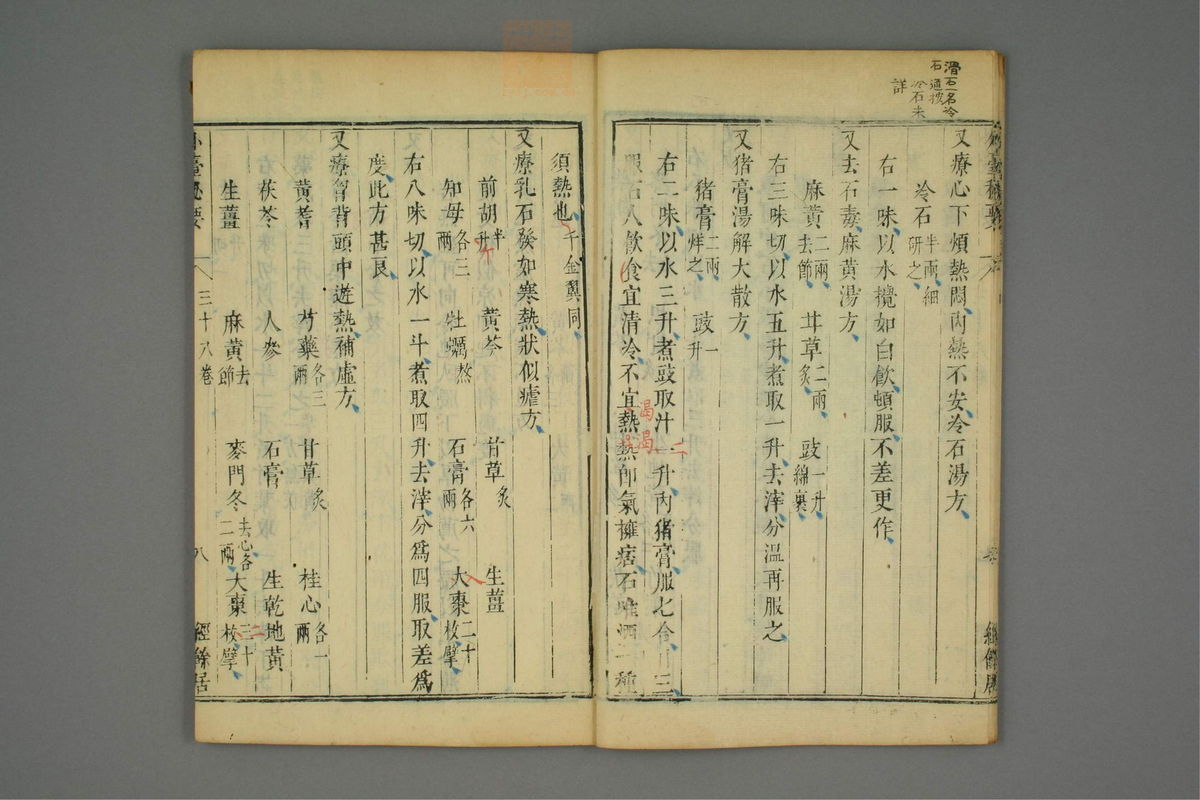 滑石一名冷
石通按
冷石未
詳
又療心下煩熱悶內熱不安冷石湯方
冷石半兩細研之
右一味以水攪如白飲頓服不差更作
又去石毒麻黃湯方
麻黃二兩去節 甘草二兩炙 豉一升綿裹
右三味切以水五升煮取一升去滓分溫再服之
又猪膏湯解大散方
猪膏二兩烊之 豉一升
右二味以水三升煮豉取汁一升內猪膏服七合日三
服石人飲食宜清冷不宜熱熱即氣擁痞石唯酒一種
須熱也千金翼同
又療乳石發如寒熱狀似瘧方
前胡半升 黃芩 甘草炙 生薑
知母各三兩 牡蠣熬 石膏各六兩 大棗二十枚擘
右八味切以水一斗煮取四升去滓分爲四服取差爲
度此方甚良
又療胷背頭中遊熱補虛方
黃蓍 芍藥各三兩 甘草炙 桂心各一兩
茯苓 人參 石膏 生乾地黃
生薑 麻黃去節 麥門冬去心各二兩 大棗三十枚擘
外臺秘要 三十八卷 八 經餘居